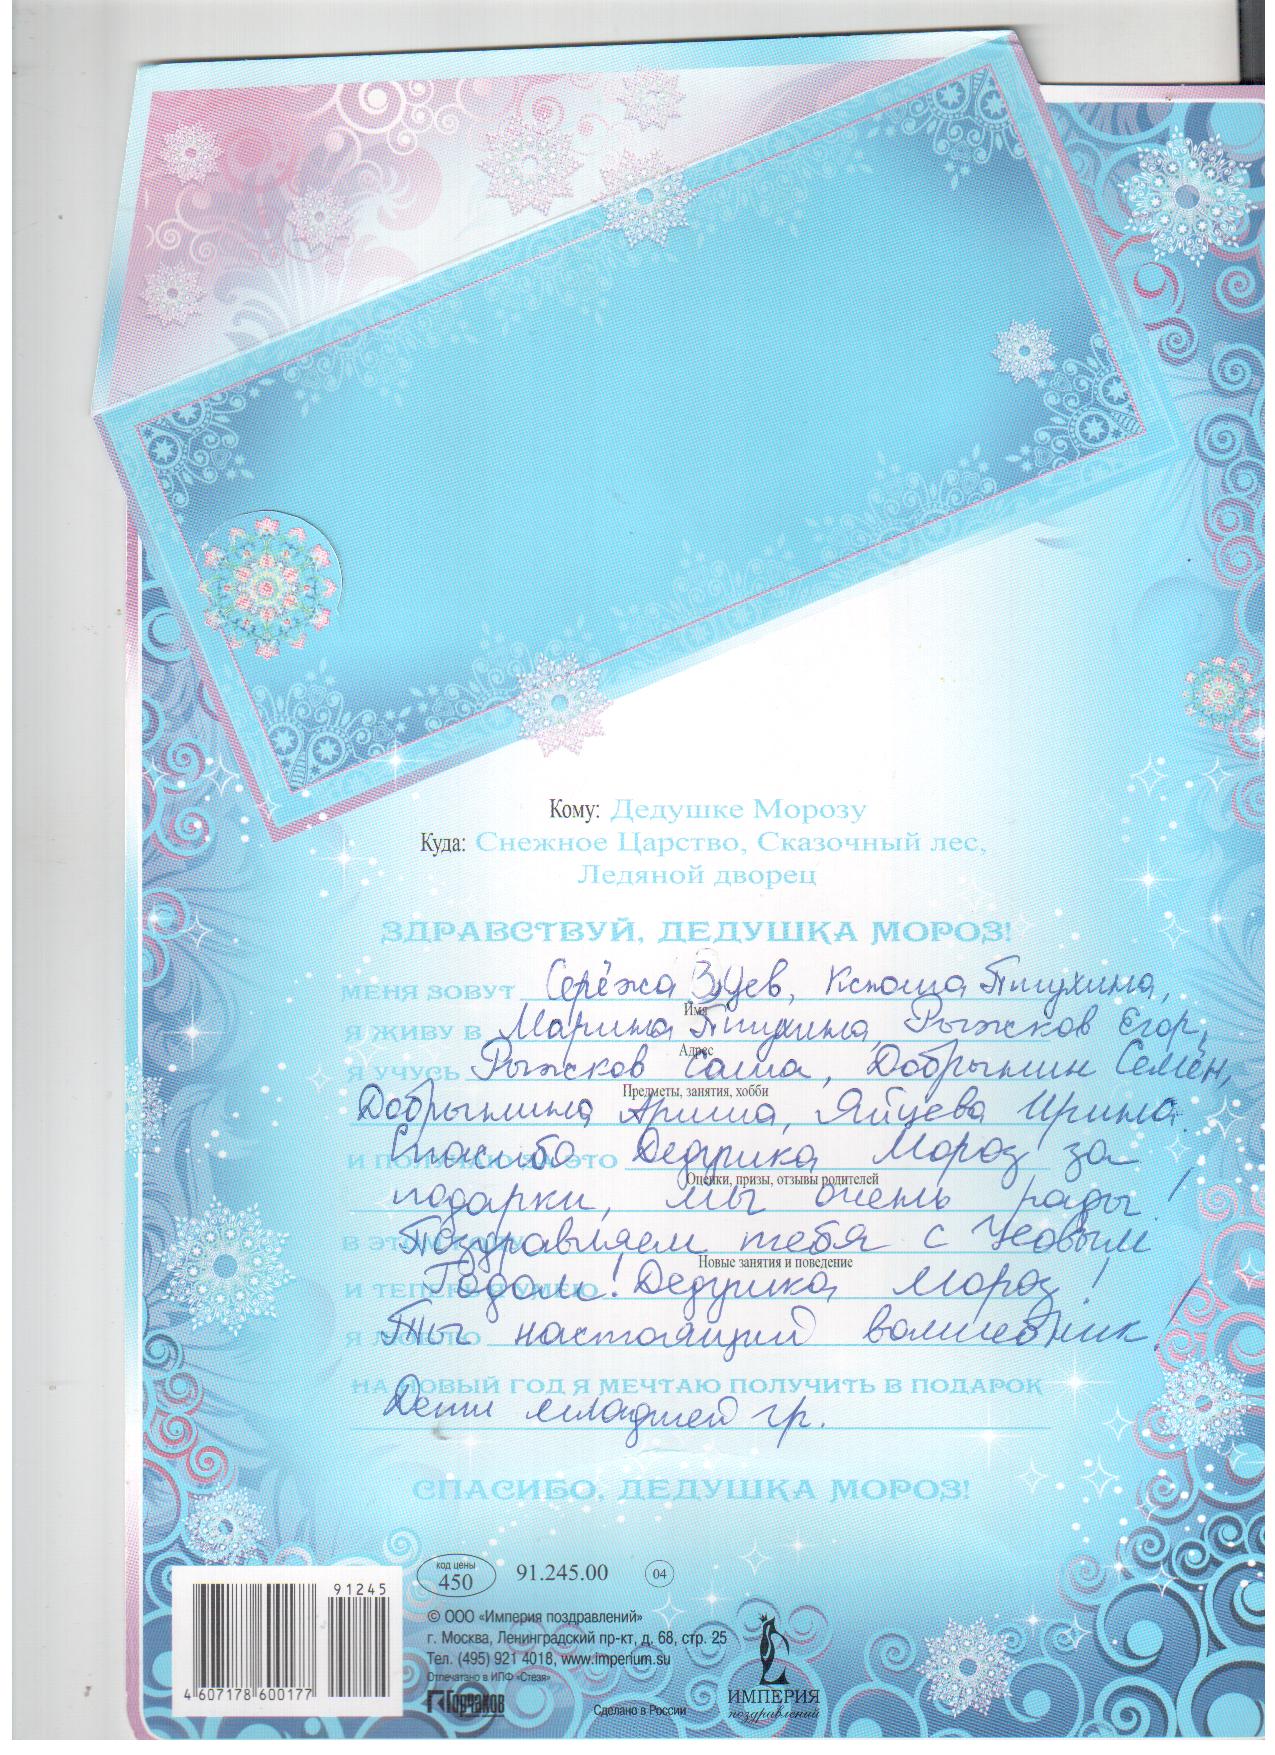 Кому: Дедушке Морозу
Куда: Снежное Царство, Сказочный лес,
Ледяной дворец
ЗДРАВСТВУЙ, ДЕДУШКА МОРОЗ!
МЕНЯ ЗОВУТ Серёжа Зуев, Ксюша Птухина,
Имя
Я ЖИВУ В Марина Птухина, Рыжков Егор,
Адрес
Я УЧУСЬ Рыжков Саша, Добрынин Семён,
Предметы, занятия, хобби
Добрынина Ариша, Яйцева Ирина.
И ПОЛУЧАЮ ЗА ЭТО Спасибо Дедушка Мороз за
Оценки, призы, отзывы родителей
подарки, мы очень рады!
В ЭТОМ ГОДУ Поздравляем тебя с Новым
Новые занятия и поведение
И ТЕПЕРЬ УМЕЮ Годом! Дедушка Мороз!
Я ЛЮБЛЮ Ты настоящий волшебник!
НА НОВЫЙ ГОД Я МЕЧТАЮ ПОЛУЧИТЬ В ПОДАРОК
Дети младшей гр.
СПАСИБО, ДЕДУШКА МОРОЗ!
код цены
450 91.245.00 04
91245
© ООО «Империя поздравлений»
г. Москва, Ленинградский пр-кт, д. 68, стр. 25
Тел. (495) 921 4018, www.imperium.su
Отпечатано в ИПФ «Стезя»
4 607178 600177
Горчаков
Сделано в России
ИМПЕРИЯ
поздравлений